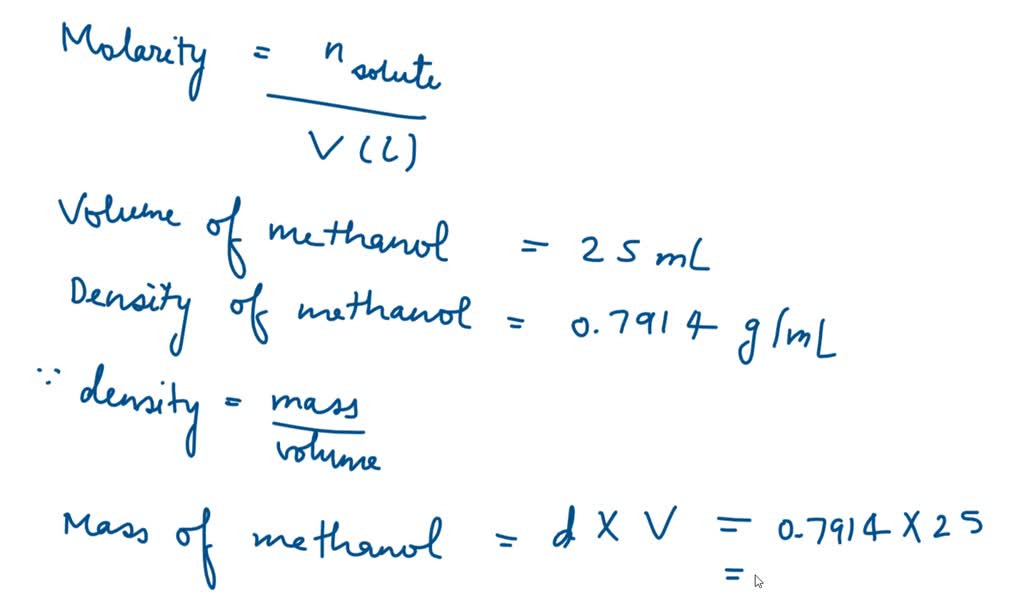 Molarity = n solute
V (L)
Volume of methanol = 25 mL
Density of methanol = 0.7914 g/mL
∵ density = mass
volume
Mass of methanol = d X V = 0.7914 X 25
=